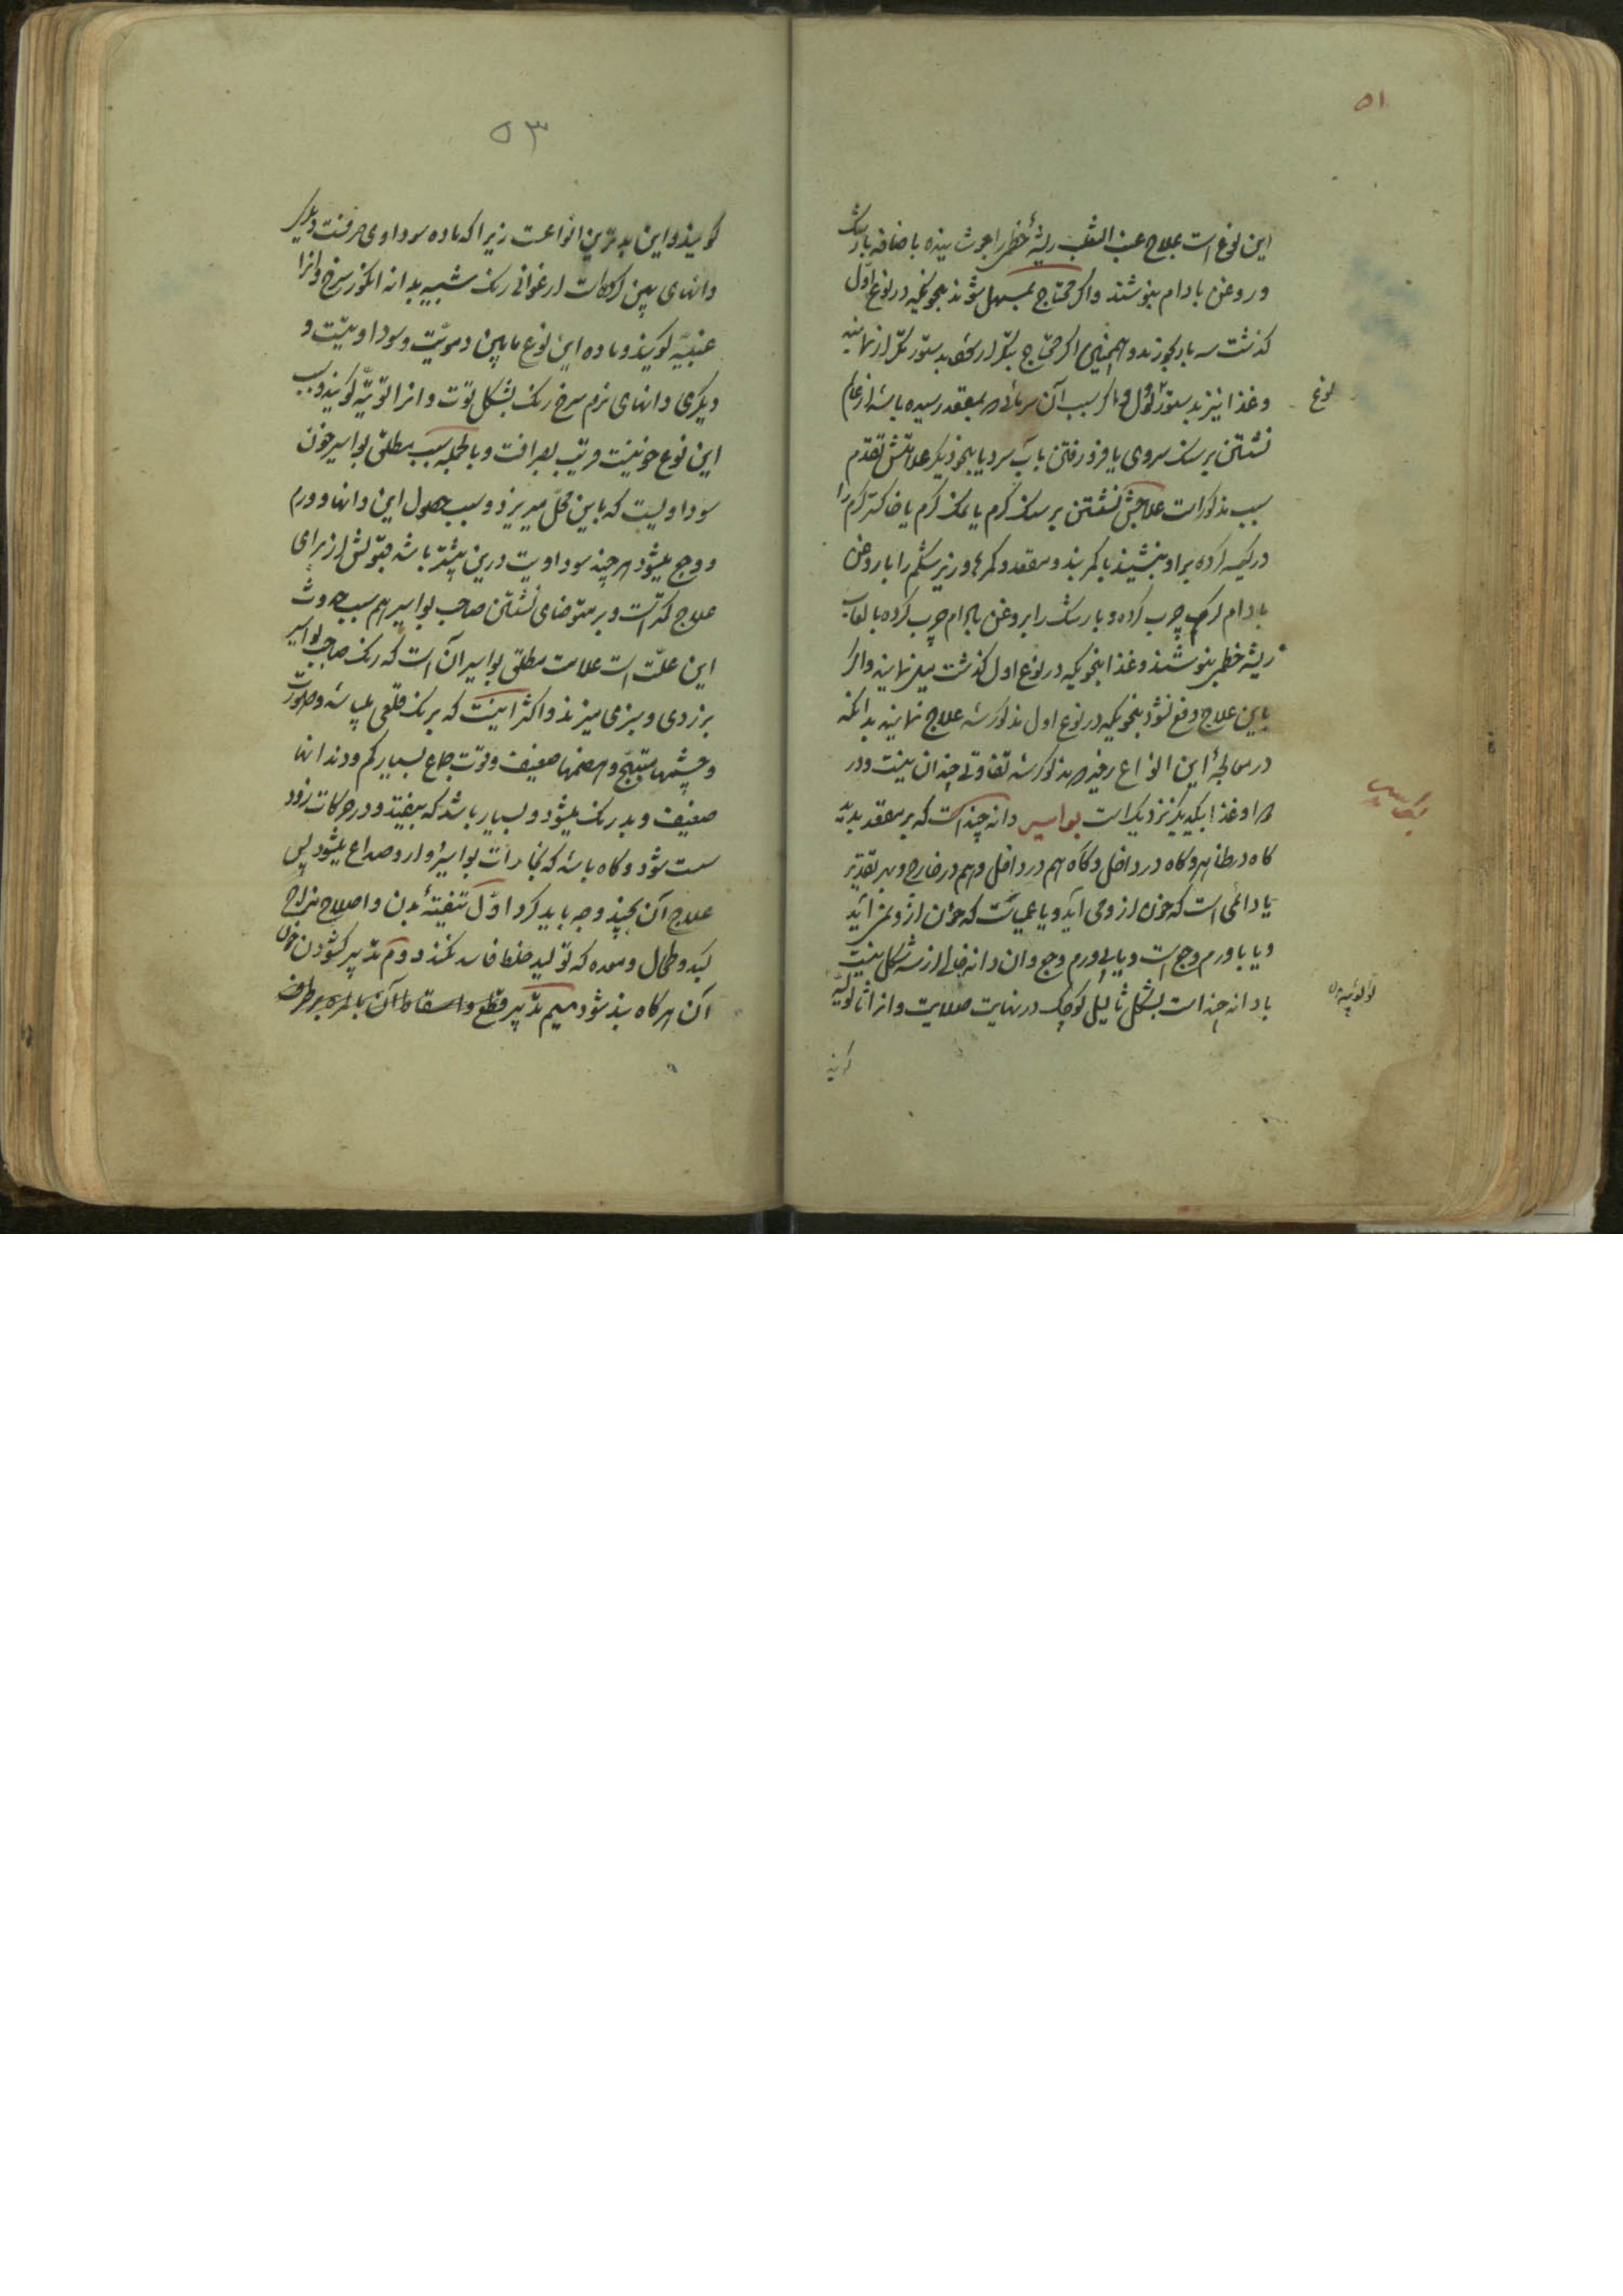 ۵۱
این نوع است علاج عنب الثعلب ریشهٔ خطمی را جوشانیده باضافه بارشک
و روغن بادام بنوشند و اگر محتاج بمسهل شوند بنحویکه در نوع اول
گذشت سه بار بخورند و همچنین اگر محتاج بتکرار بدستور تکرار نمایند
و غذا نیز بدستور اول و اگر سبب آن سرمائی بمقعد رسیده باشد از
نوع
نشستن بر سنگ سردی یا فرو رفتن باب سرد یا بنحو دیگر علامتش تقدم
سبب مذکور است علاجش نشستن بر سنگ گرم یا نمک گرم یا خاکستر گرم را
در کیسه کرده بر او بنشیند یا کمر بند و مقعد و کمر و زیر شکم را با روغن
بادام گرم چرب کرده و بارشک را بروغن بادام چرب کرده با لعاب
ریشه خطمی بنوشند و غذا بنحویکه در نوع اول گذشت میل نمایند و اگر
باین علاج دفع نشود بنحویکه در نوع اول مذکور شد علاج نمایند بدانکه
در معالجهٔ این انواع زحیر مذکور شد تفاوتی چندان نیست و در
دوا و غذا بیکدیگر نزدیک است بواسیر دانه چند است که بر مقعد پدید
بواسیر
گاه در ظاهر و گاه در داخل و گاه هم در داخل و هم در خارج و بهر تقدیر
یا دائمی است که خون از و می آید و یا عمیاست که خون از و نمی آید
و یا با ورم و وجع است و یا بی ورم و وجع و ان دانه خالی از سه شکل نیست
یا دانه چند است بشکل ثالیل کوچک در نهایت صلابت و انرا ثالولیه
گویند
۵۳
گویند و این بدترین انواعست زیرا که ماده سوداوی صرفست دیگر
دانهای پهن ارغوانی رنگ شبیه بدانه انگور سرخ و انرا
عنبیّه گویند و ماده این نوع مابین دمویّت و سوداویّت و
دیگری دانهای نرم سرخ رنگ بشکل توت و انرا توتیّه گویند و سبب
این نوع خونیست قریب بصرافت و بالجمله سبب مطلق بواسیر خون
سوداویست که باین محل میریزد و سبب حصول این دانها و ورم
و وجع میشود هر چند سوداویت درین بیشتر باشد قبولش از برای
علاج کمتر است و بر متوضای نشستن صاحب بواسیر هم سبب حدوث
این علّت است علامت مطلق بواسیر آن است که رنگ صاحب بواسیر
بزردی و سبزی میزند و اکثر اینست که برنگ قلعی میباشد و صورت
و چشمها متهبّج و هضمها ضعیف و قوت جماع بسیار کم و دندانها
ضعیف و بد رنگ میشود و بسیار باشد که بیفتد و در حرکات زود
سست شود و گاه باشد که بخارات بواسیر و دوار و صداع میشود پس
علاج آن بچند وجه باید کرد اوّل تنقیهٔ بدن و اصلاح مزاج
کبد و طحال و معده که تولید خلط فاسد نکند دوم تدبیر گشودن خون
آن هر گاه بند شود سیم تدبیر قطع و اسقاط آن بالمره برطرف